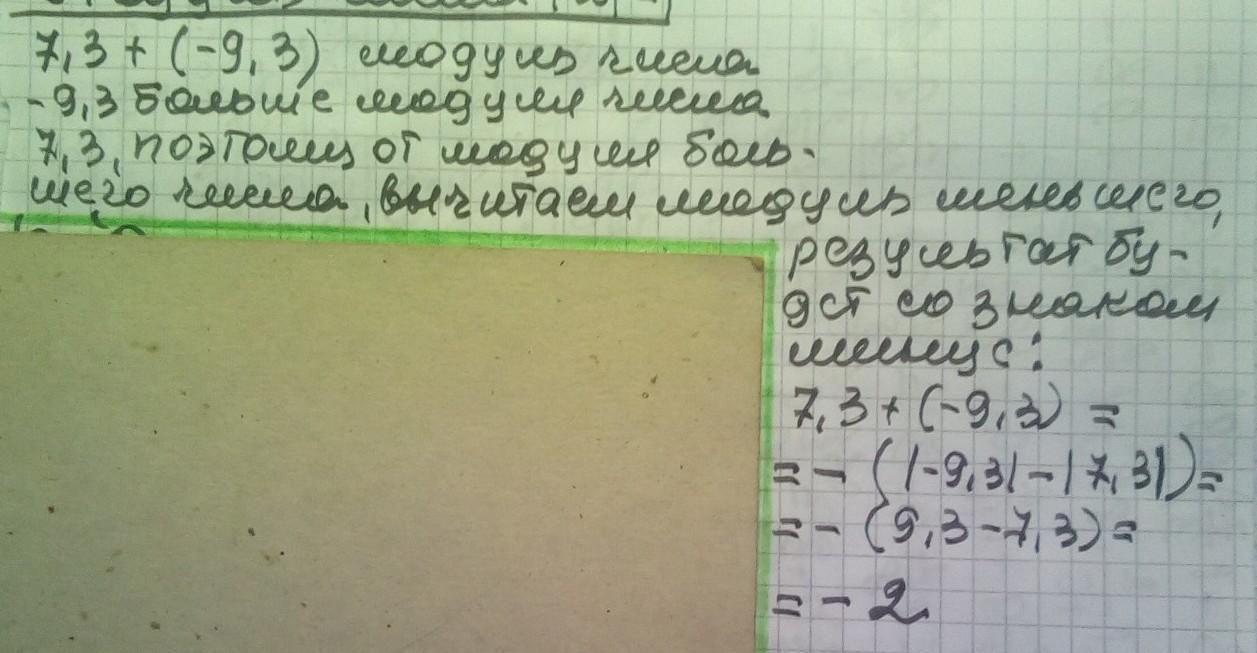 7,3 + (-9,3) модуль числа
-9,3 больше модуля числа
7,3, поэтому от модуля боль-
шего числа, вычитаем модуль меньшего,
результат бу-
дет со знаком
минус:
7,3 + (-9,3) =
= - (|-9,3| - |7,3|) =
= - (9,3 - 7,3) =
= - 2